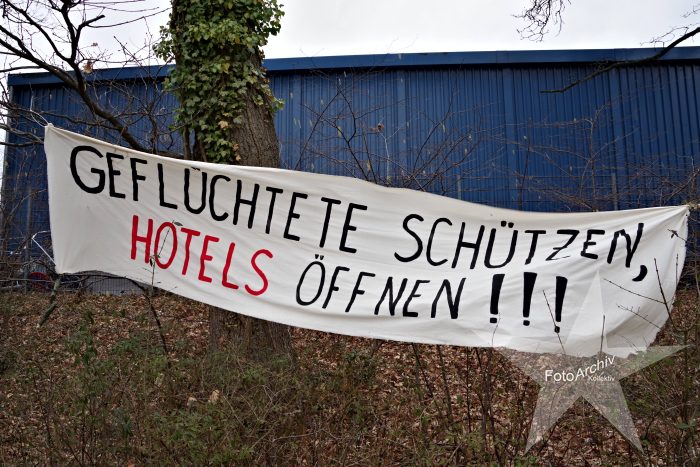 GEFLÜCHTETE SCHÜTZEN,
HOTELS ÖFFNEN !!!
FotoArchiv
Kollektiv